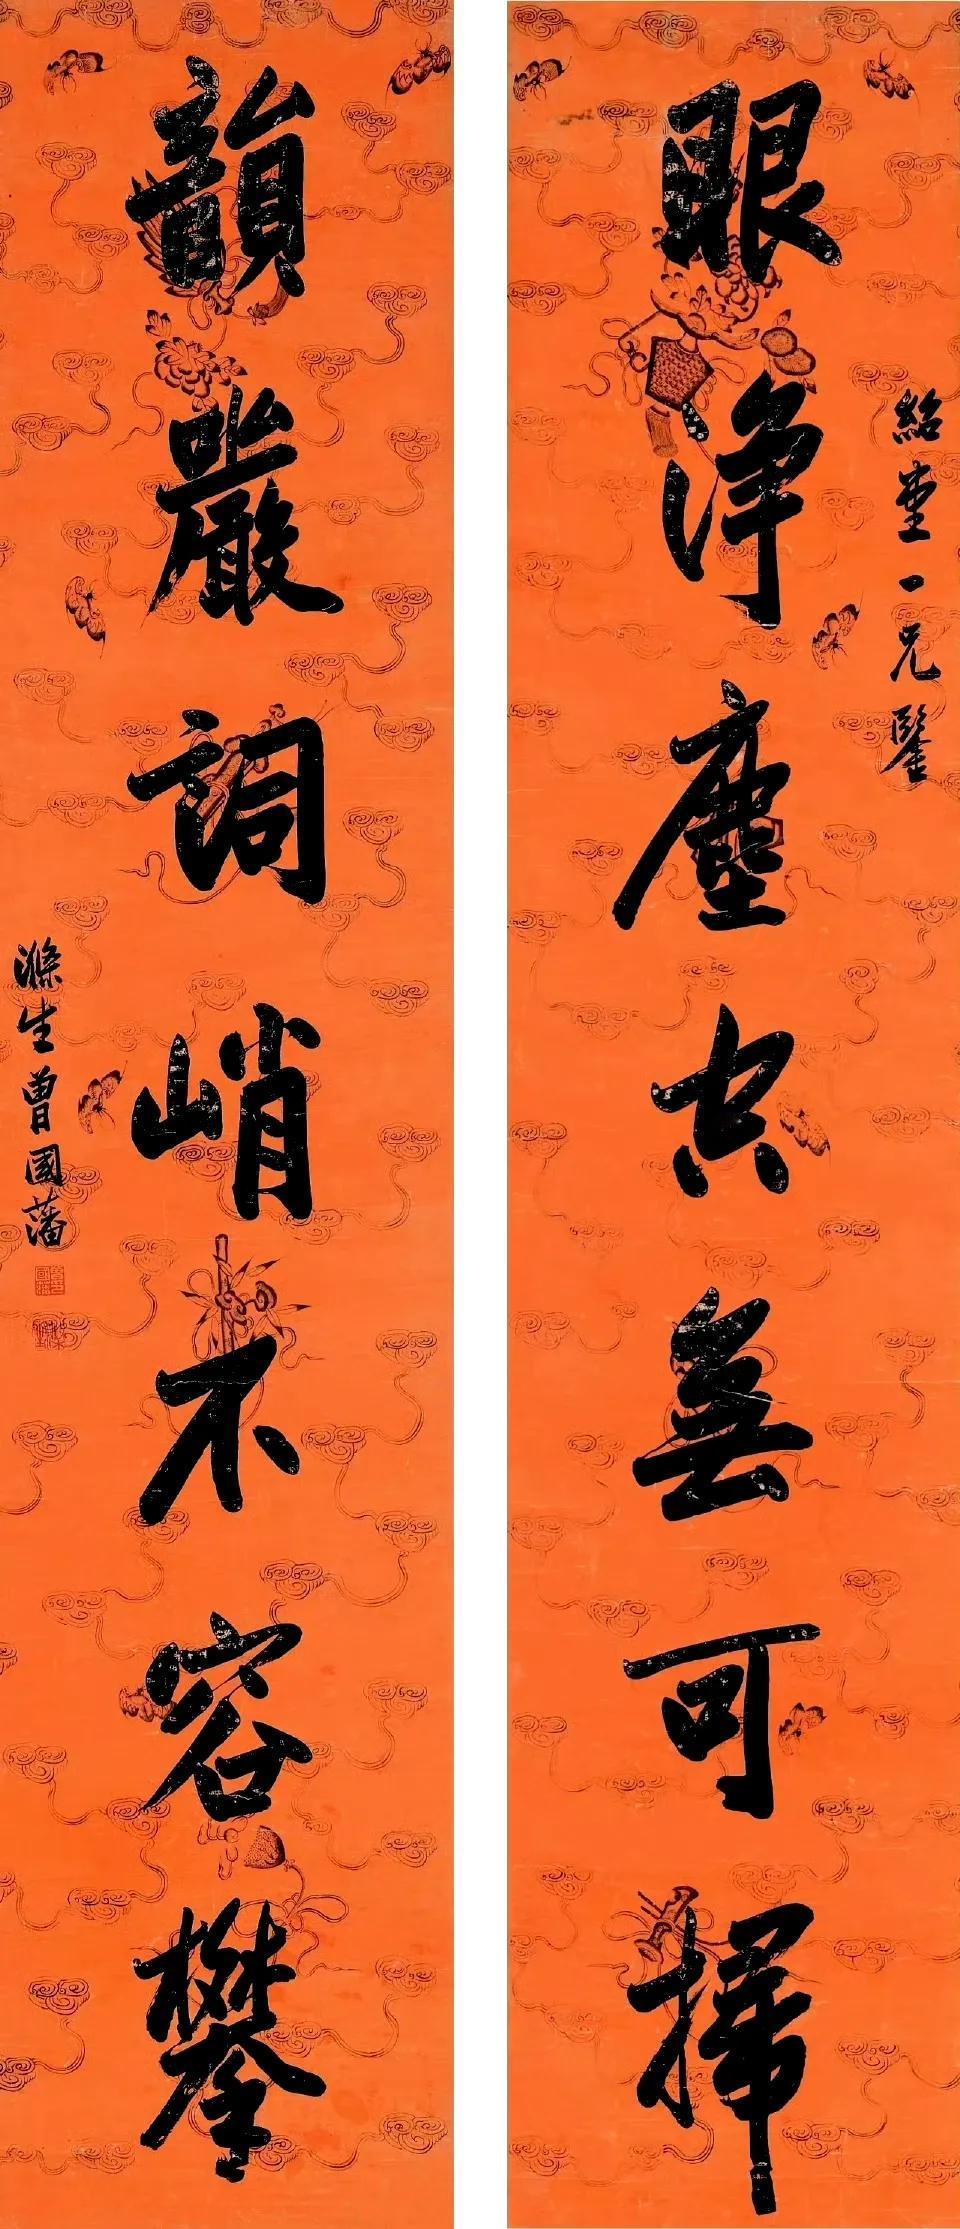 紹堂一兄鑒
眼淨塵空無可掃
韻嚴詞峭不容攀
滌生曾國藩